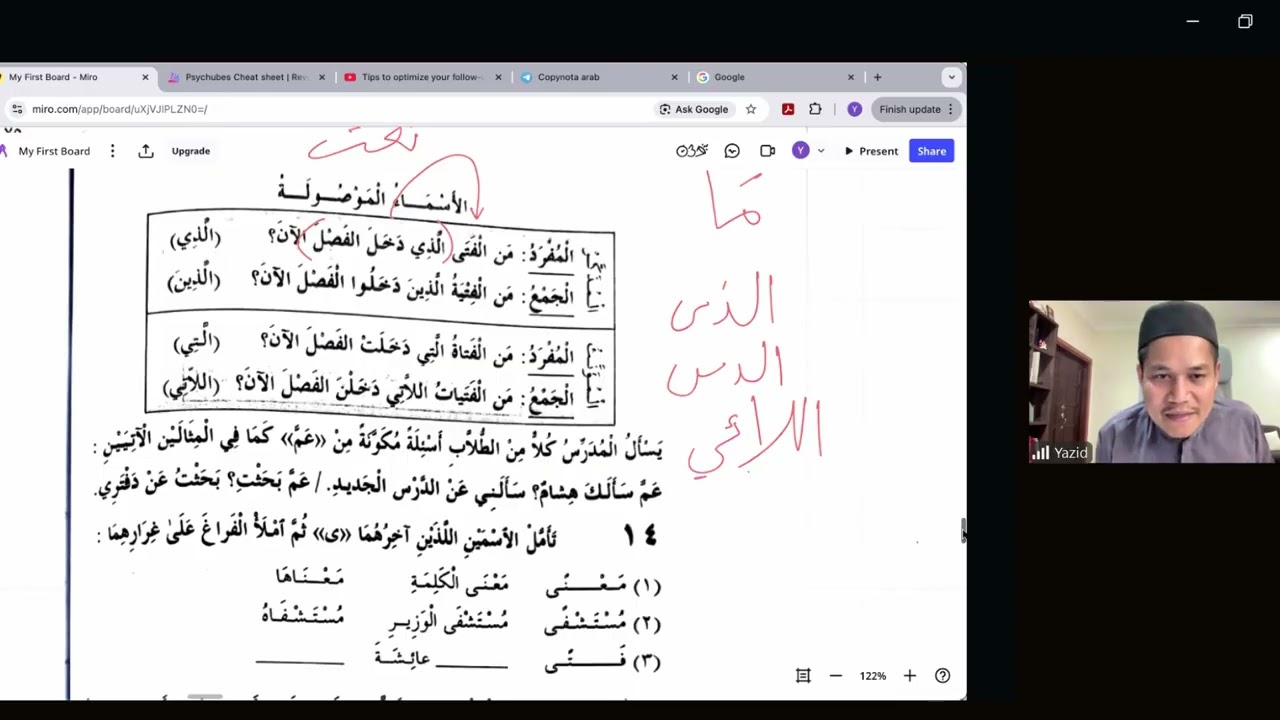 My First Board - Miro
Psychubes Cheat sheet | Rev
Tips to optimize your follow-
Copynota arab
Google
miro.com/app/board/uXjVJlPLZN0=/
Ask Google
Finish update
My First Board
Upgrade
Present
Share
نعت
الأَسْمَاءُ الْمَوْصُولَةُ
الْمُفْرَدُ: مَنِ الْفَتَى الَّذِي دَخَلَ الفَصْلَ الآنَ؟ (الَّذِي)
الْجَمْعُ: مَنِ الْفِتْيَةُ الَّذِينَ دَخَلُوا الْفَصْلَ الآنَ؟ (الَّذِينَ)
الْمُفْرَدُ: مَنِ الْفَتاةُ الَّتِي دَخَلَتْ الفَصْلَ الآنَ؟ (الَّتِي)
الْجَمْعُ: مَنِ الْفَتَيَاتُ اللاَّتِي دَخَلْنَ الفَصْلَ الآنَ؟ (اللاَّتِي)
مَا
الذى
اللائي
يَسْأَلُ الْمُدَرِّسُ كُلاًّ مِنَ الطُّلاَّبِ أَسْئِلَةً مُكَوَّنَةً مِنْ «عَمَّ» كَمَا فِي الْمِثَالَيْنِ الْآتِيَيْنِ :
عَمَّ سَأَلَكَ هِشامٌ؟ سَأَلَنِي عَنِ الدَّرْسِ الْجَدِيدِ. / عَمَّ بَحَثْتِ؟ بَحَثْتُ عَنْ دَفْتَرِي.
١٤ تَأَمَّلِ الاسْمَيْنِ اللَّذَيْنِ آخِرُهُمَا «ى» ثُمَّ امْلَأْ الْفَراغَ عَلَىٰ غِرَارِهِمَا :
(١) مَعْنًى مَعْنَى الْكَلِمَةِ مَعْنَاهَا
(٢) مُسْتَشْفًى مُسْتَشْفَى الْوَزِيرِ مُسْتَشْفَاهُ
(٣) فَتًى ______ عائِشَةَ ______
122%
Yazid